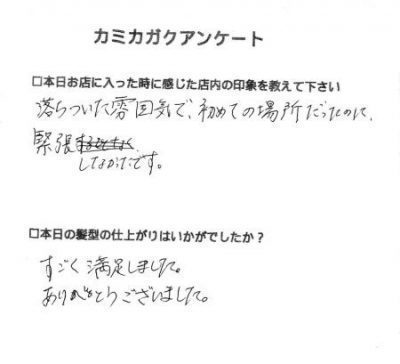 カミカガクアンケート
□本日お店に入った時に感じた店内の印象を教えて下さい
落ちついた雰囲気で、初めての場所だったのに、
緊張
しなかたです。
□本日の髪型の仕上がりはいかがでしたか？
すごく満足しました。
ありがとうございました。